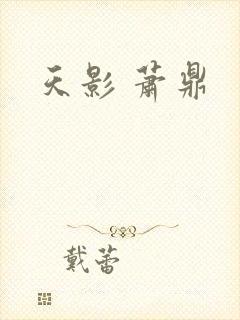 天影 萧鼎
戴蕾